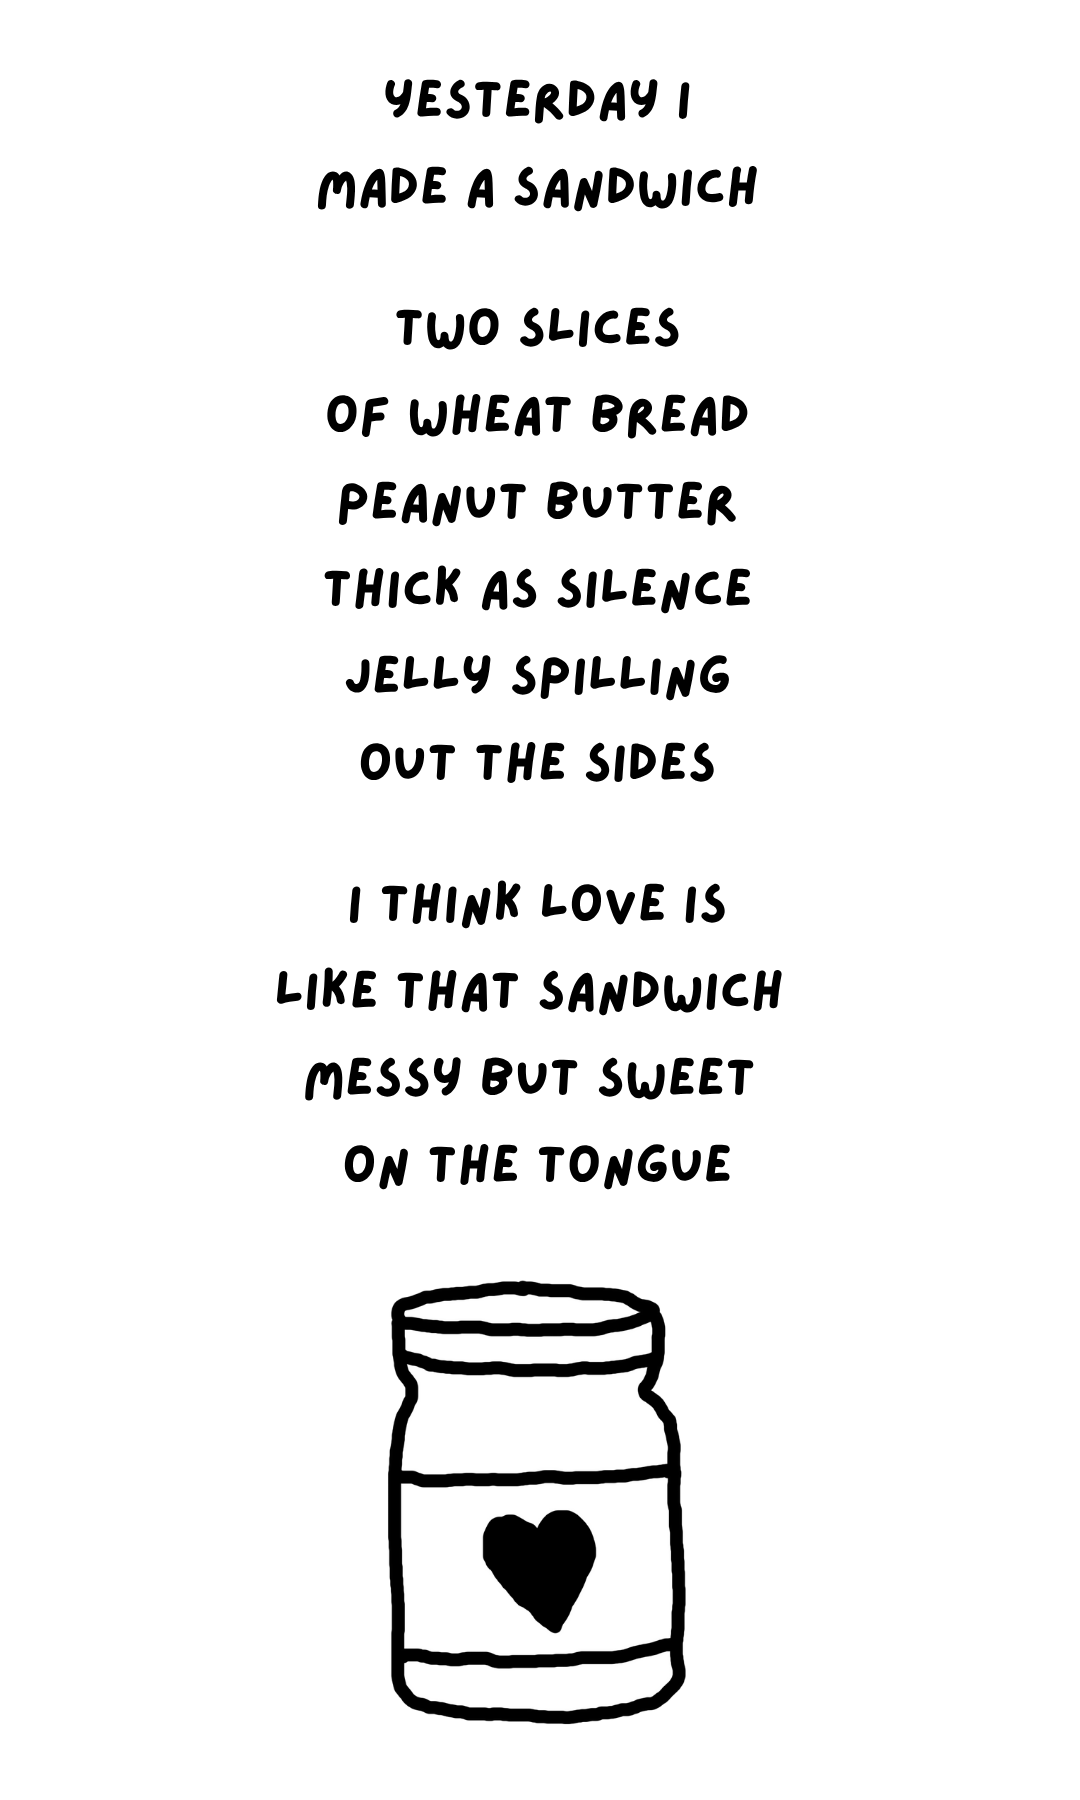 YESTERDAY I
MADE A SANDWICH
TWO SLICES
OF WHEAT BREAD
PEANUT BUTTER
THICK AS SILENCE
JELLY SPILLING
OUT THE SIDES
I THINK LOVE IS
LIKE THAT SANDWICH
MESSY BUT SWEET
ON THE TONGUE